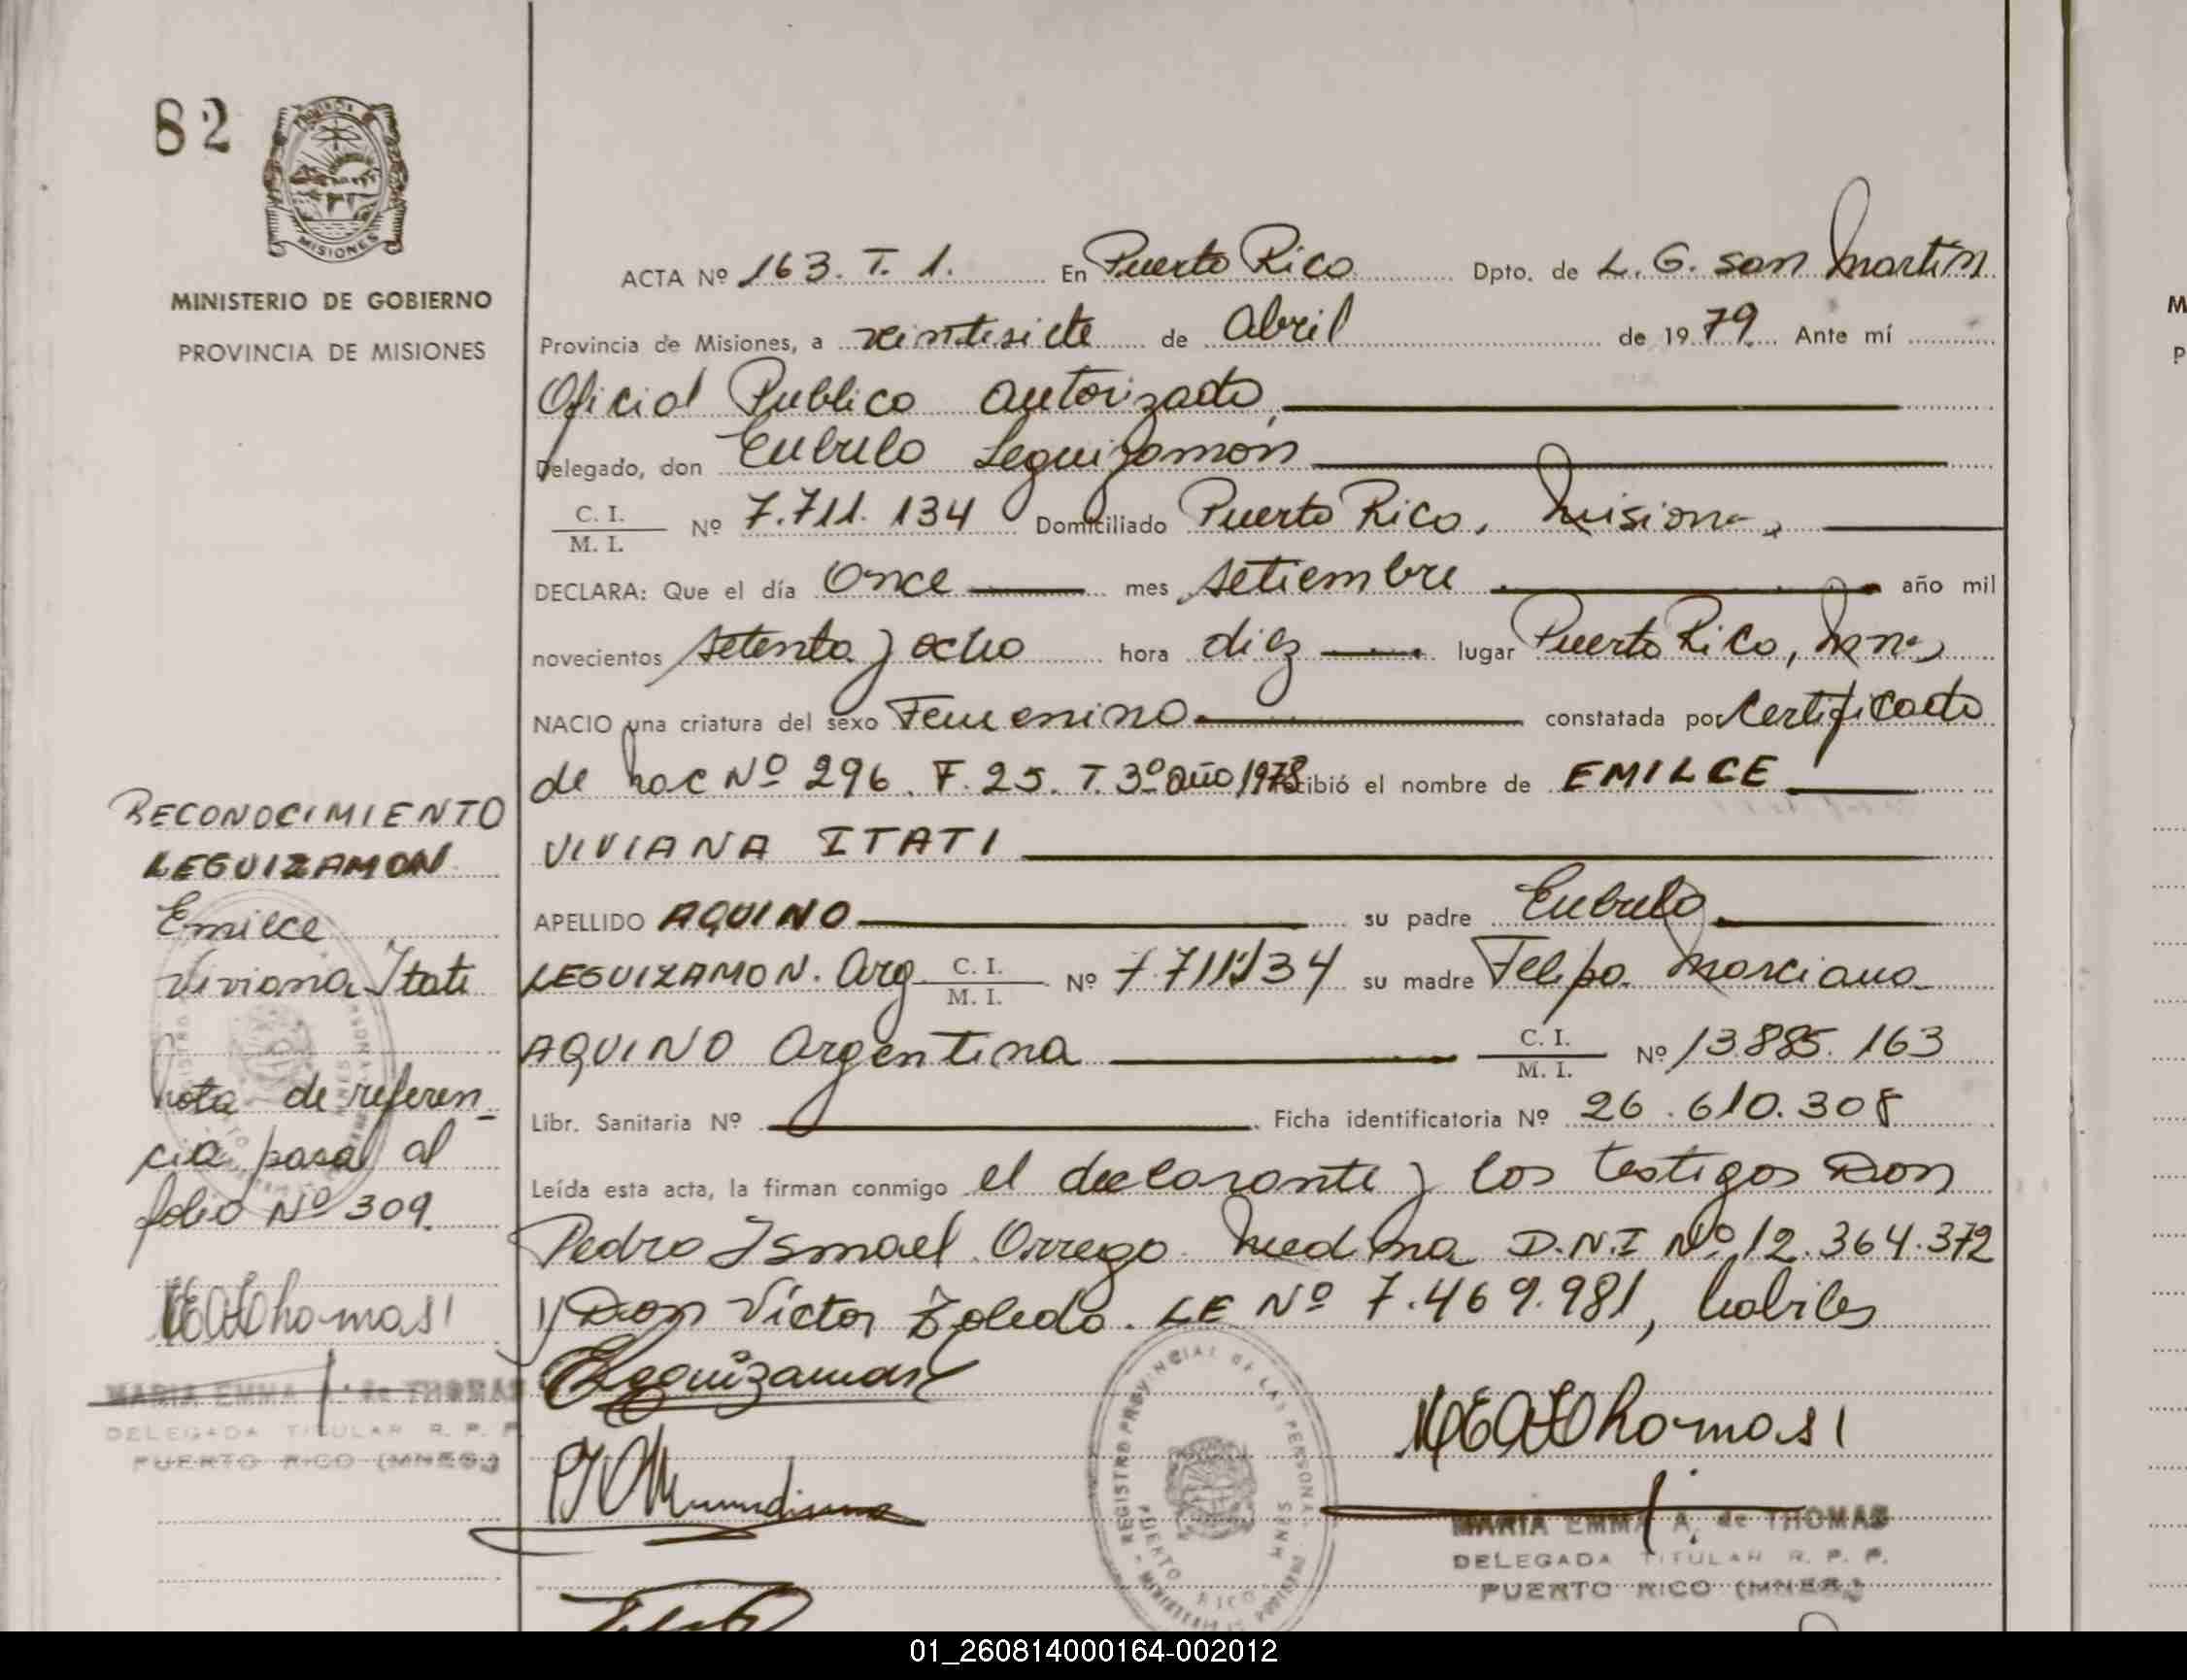 82
MISIONES
MINISTERIO DE GOBIERNO
PROVINCIA DE MISIONES
ACTA Nº 163. T. 1. En Puerto Rico Dpto. de L. G. San Martín
Provincia de Misiones, a veintisiete de Abril de 1979. Ante mí
Oficial Publico autorizado,
Delegado, don Leguizamón
C. I. / M. I. Nº 7.711.134 Domiciliado Puerto Rico, Misiones,
DECLARA: Que el día Once mes setiembre año mil
novecientos setenta y ocho hora diez lugar Puerto Rico, Mnes,
NACIO una criatura del sexo Femenino constatada por Certificado
de Nac Nº 296. F. 25. T. 3º año 1978 recibió el nombre de EMILCE
VIVIANA ITATI
APELLIDO AQUINO su padre
LEGUIZAMON. Arg C. I. / M. I. Nº 7.711.134 su madre Felipa Marciana
AQUINO Argentina C. I. / M. I. Nº 13.885.163
Libr. Sanitaria Nº Ficha identificatoria Nº 26.610.308
Leída esta acta, la firman conmigo el declarante y los testigos Don
Pedro Ismael Orrego Medina D.N.I Nº 12.364.372
y Don Víctor Toledo. LE Nº 7.469.981, habiles
Leguizamon
MARIA EMMA A. de THOMAS
DELEGADA TITULAR R. P. P.
PUERTO RICO (MNES.)
REGISTRO PROVINCIAL DE LAS PERSONAS
PUERTO RICO MNES
RECONOCIMIENTO
LEGUIZAMON
Emilce
Viviana Itati
Nota de referen-
cia pasa al
folio Nº 309.
MARIA EMMA A. de THOMAS
DELEGADA TITULAR R. P. P.
PUERTO RICO (MNES.)
01_260814000164-002012